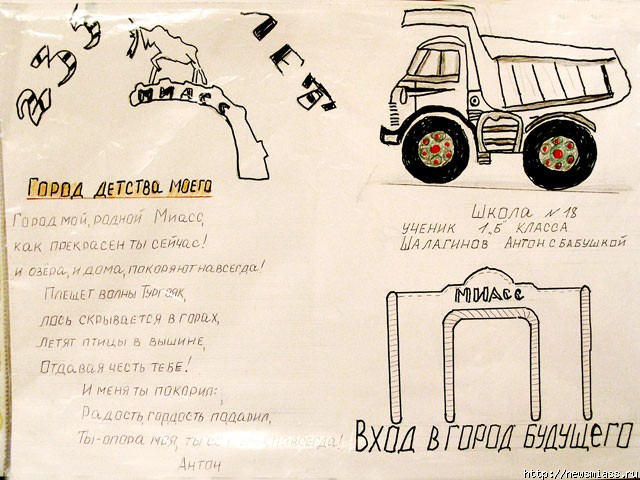 В 233 ЛЕТ
МИАСС
ГОРОД ДЕТСТВА МОЕГО
ГОРОД МОЙ, РОДНОЙ МИАСС,
КАК ПРЕКРАСЕН ТЫ СЕЙЧАС!
И ОЗЁРА, И ДОМА, ПОКОРЯЮТ НАВСЕГДА!
ПЛЕЩЕТ ВОЛНЫ ТУРГОЯК,
ЛОСЬ СКРЫВАЕТСЯ В ГОРАХ,
ЛЕТЯТ ПТИЦЫ В ВЫШИНЕ,
ОТДАВАЯ ЧЕСТЬ ТЕБЕ!
И МЕНЯ ТЫ ПОКОРИЛ:,
РАДОСТЬ, ГОРДОСТЬ ПОДАРИЛ,
ТЫ-ОПОРА МОЯ, ТЫ НАВСЕГДА!
АНТОН
ШКОЛА N 18
УЧЕНИК 1„Б" КЛАССА
ШАЛАГИНОВ АНТОН С БАБУШКОЙ
МИАСС
ВХОД В ГОРОД БУДУЩЕГО
http://newsmiass.ru